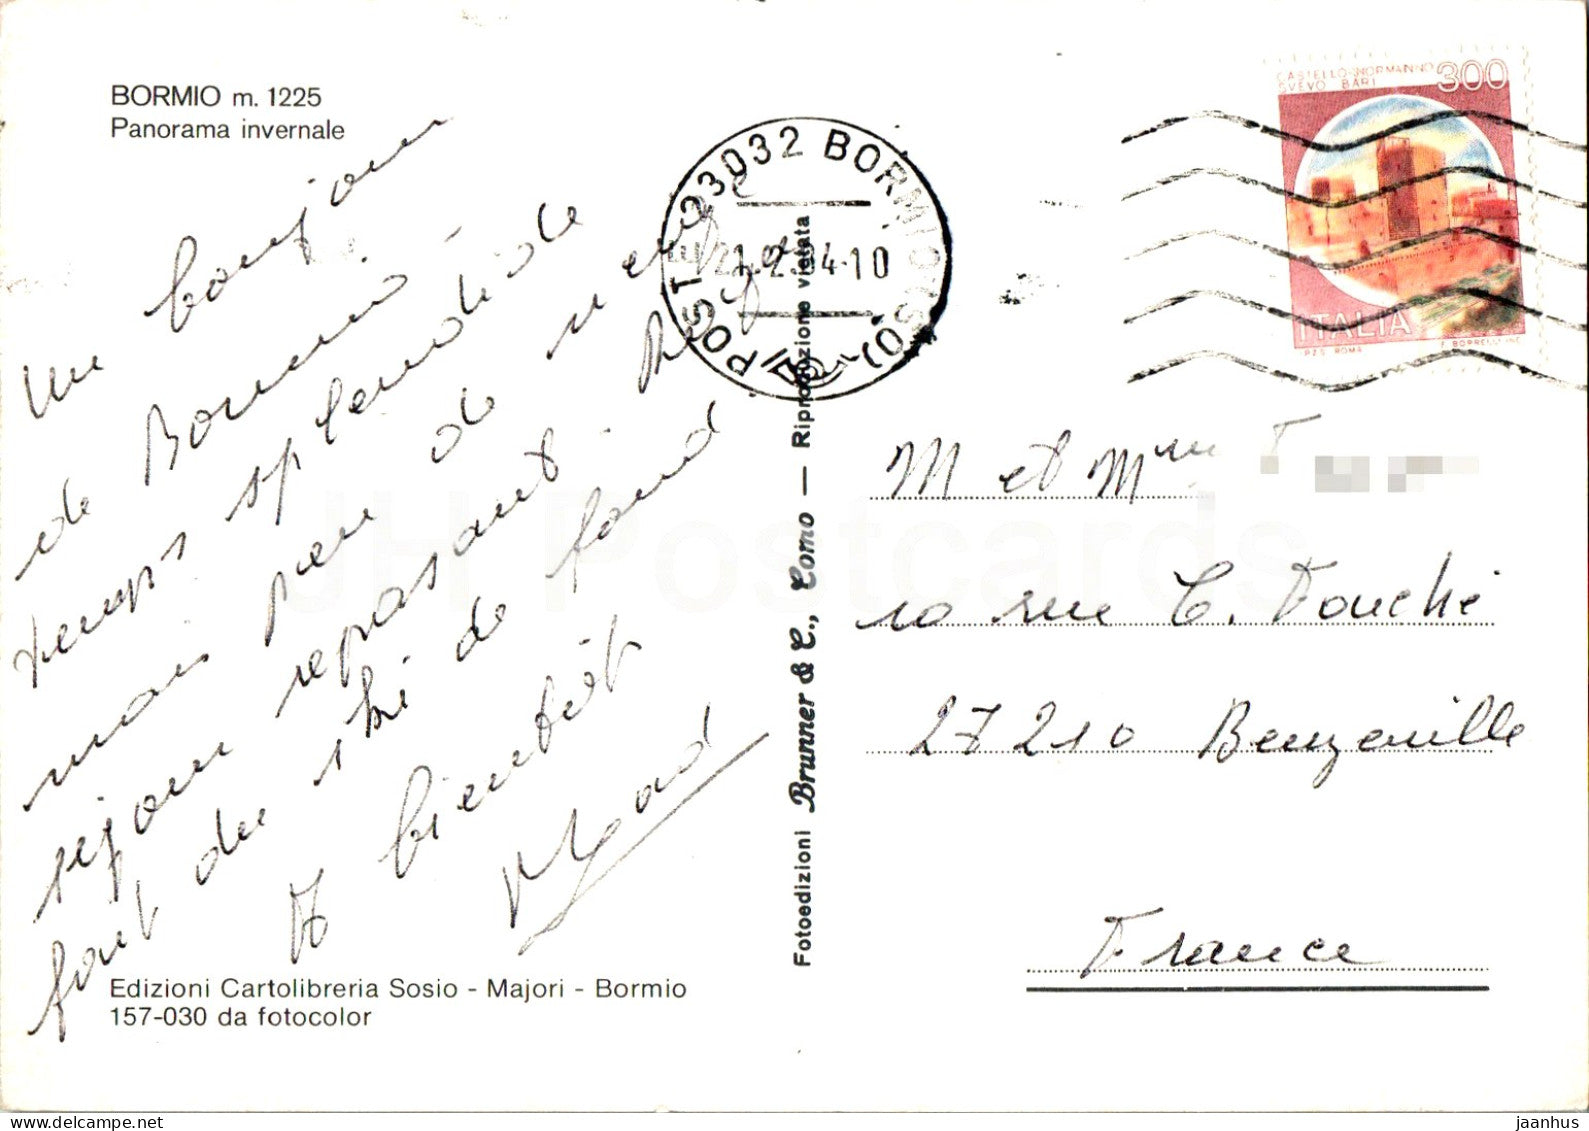 BORMIO m. 1225
Panorama invernale
Un bonjour
de Bormio
temps splendide
mais peu de neige
séjour reposant
fait du ski de fond
A bientôt
Edizioni Cartolibreria Sosio - Majori - Bormio
157-030 da fotocolor
Fotoedizioni Brunner & C., Como — Riproduzione vietata
POSTE 23032 BORMIO (SO)
21.2.94-10
CASTELLO NORMANNO
SVEVO BARI
300
ITALIA
P.Z.S. ROMA
E. BORRELLI INC.
M et Mme F
10 rue C. Fouché
27210 Beuzeville
France
JH Postcards
jaanhus